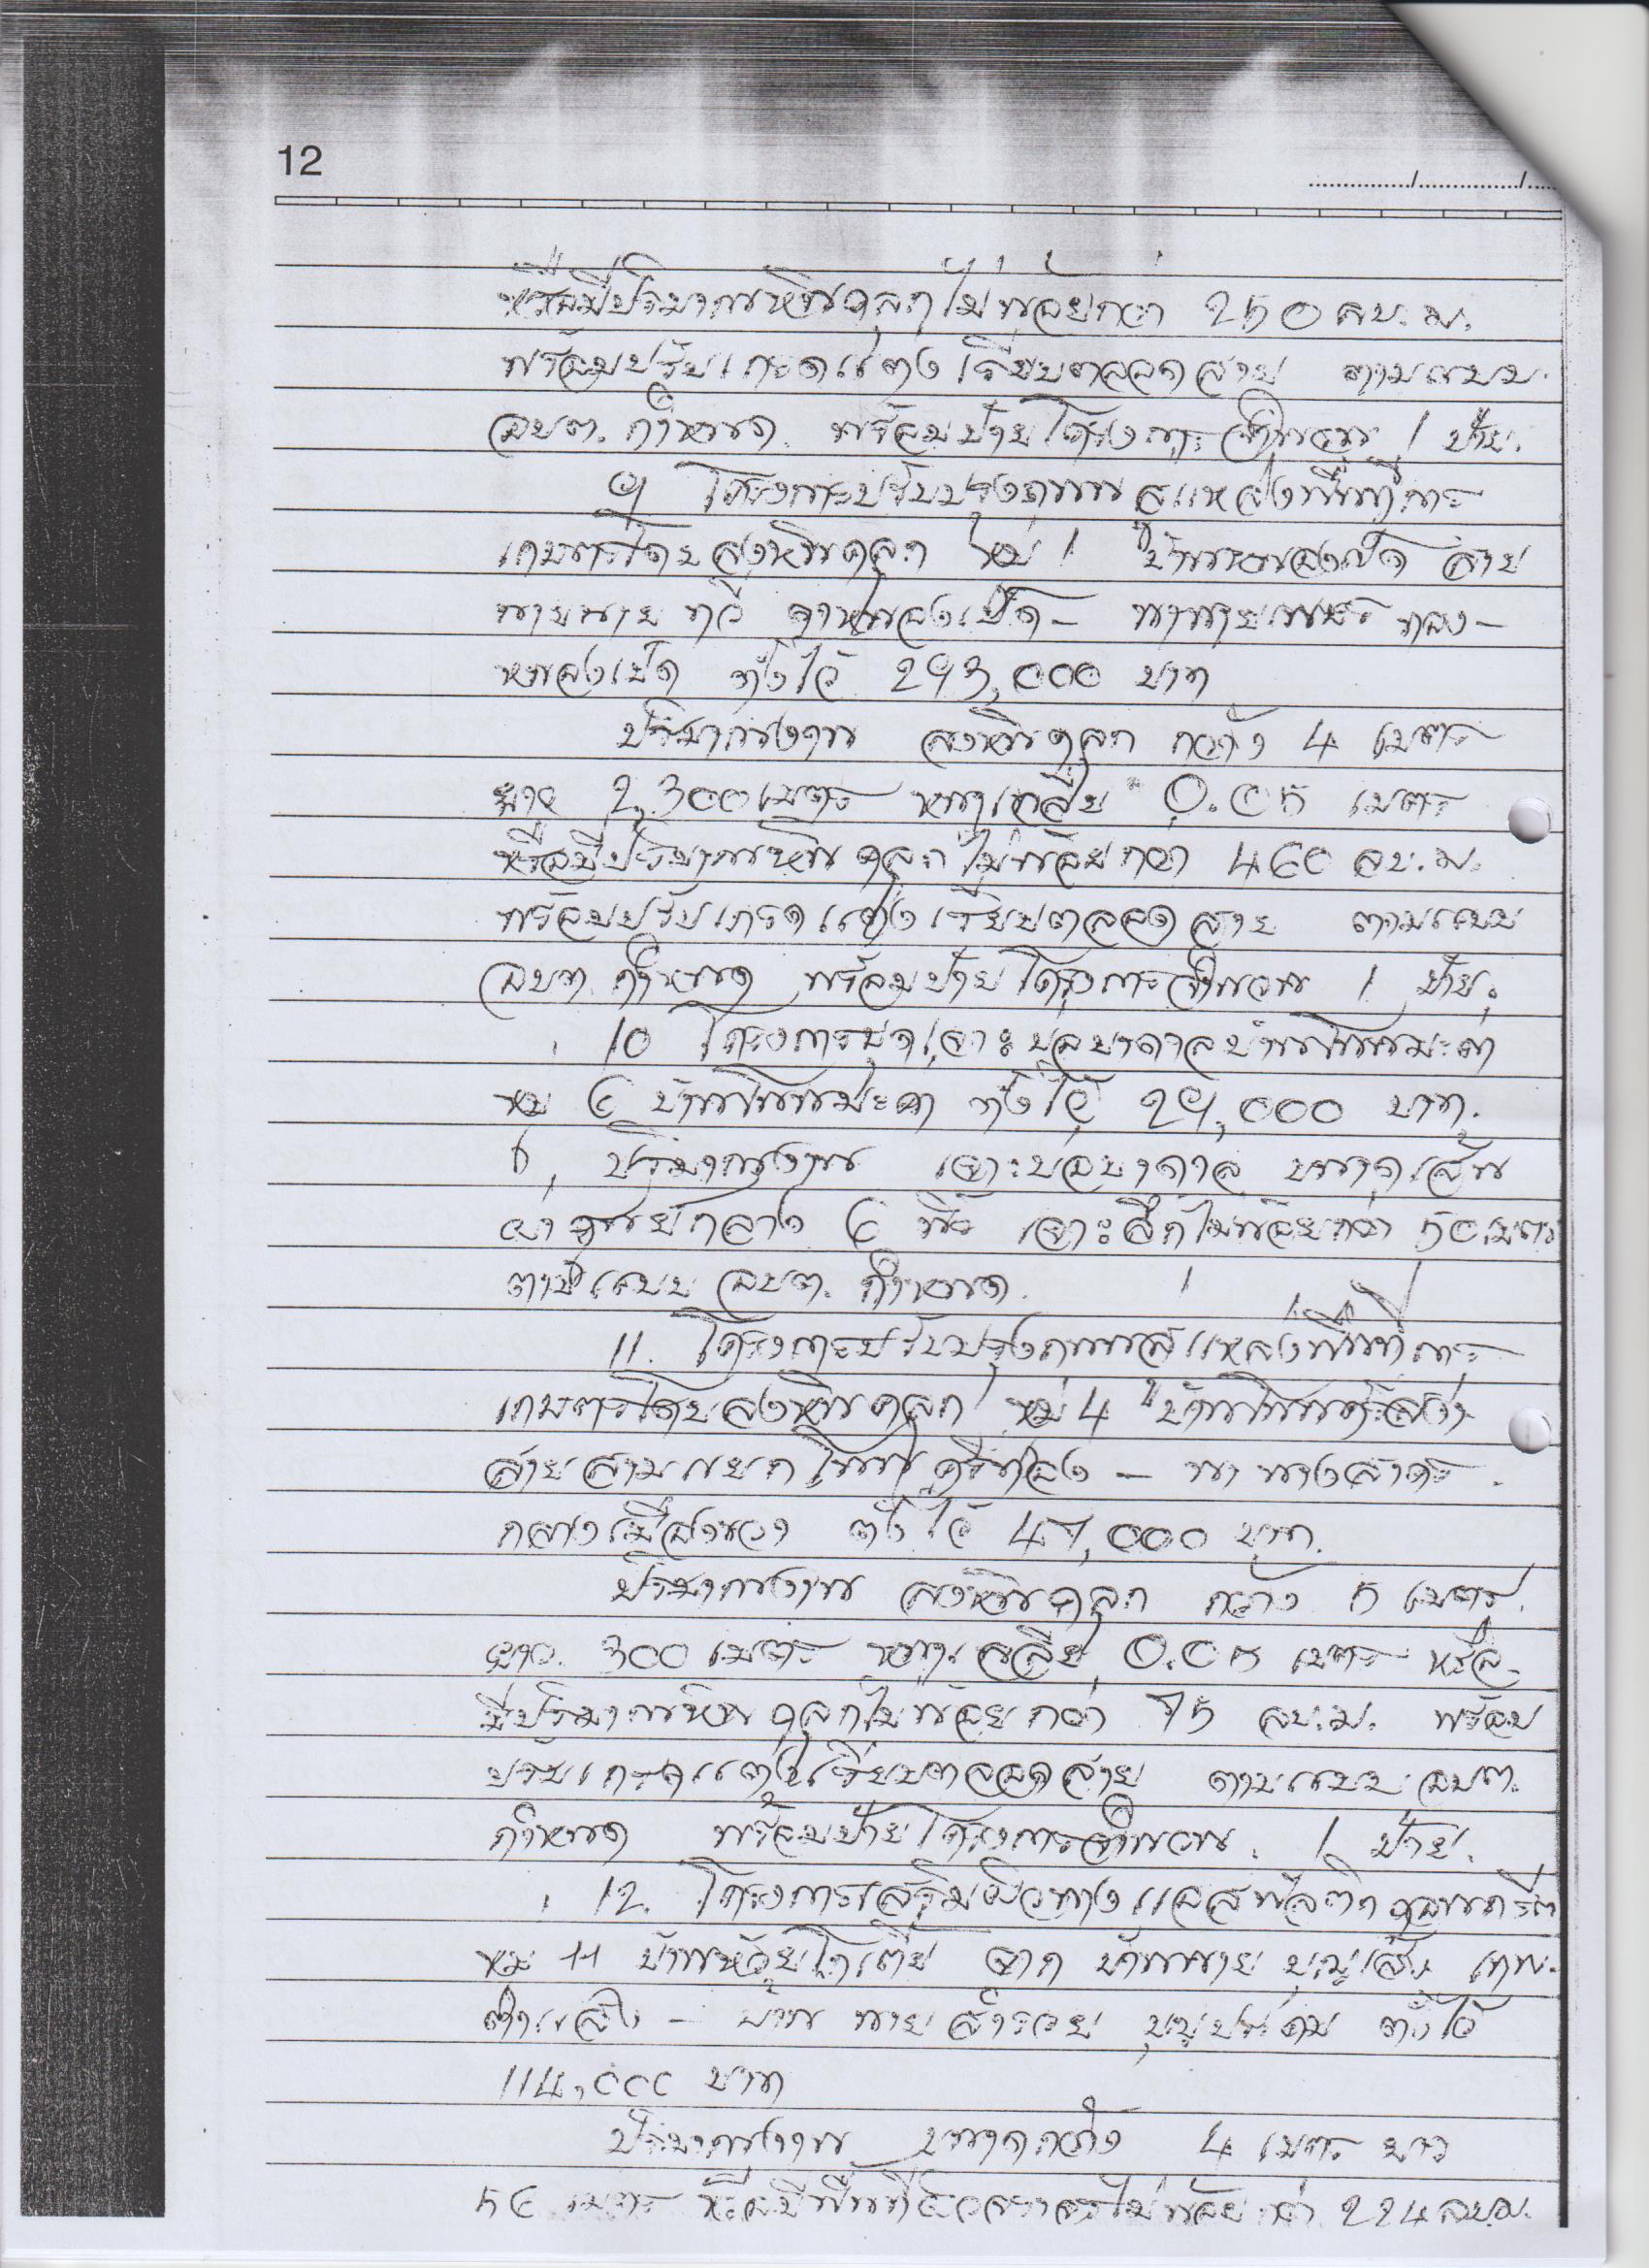 12
หรือมีปริมาณหินคลุกไม่น้อยกว่า 250 ลบ.ม.
พร้อมปรับเกรดแต่งเรียบตลอดสาย ตามแบบ
อบต. กำหนด. พร้อมป้ายโครงการจำนวน 1 ป้าย.
9 โครงการปรับปรุงถนนสู่แหล่งพื้นที่การ
เกษตรโดยลงหินคลุก หมู่ 1 บ้านหนองเป็ด สาย
นายทวี หนองเป็ด - นานาย ทอง -
หนองเป็ด ตั้งไว้ 293,000 บาท
ปริมาณงาน ลงหินคลุก กว้าง 4 เมตร
ยาว 2,300 เมตร หนาเฉลี่ย 0.05 เมตร
หรือมีปริมาณหินคลุกไม่น้อยกว่า 460 ลบ.ม.
พร้อมปรับเกรดแต่งเรียบตลอดสาย ตามแบบ
อบต. กำหนด พร้อมป้ายโครงการจำนวน 1 ป้าย.
10 โครงการขุดเจาะบ่อบาดาลบ้านโนนมะค่า
หมู่ 6 บ้านโนนมะค่า ตั้งไว้ 29,000 บาท.
ปริมาณงาน เจาะบ่อบาดาล ขนาดเส้น
ผ่าศูนย์กลาง 6 นิ้ว เจาะลึกไม่น้อยกว่า 50 เมตร
ตามแบบ อบต. กำหนด.
11. โครงการปรับปรุงถนนสู่แหล่งพื้นที่การ
เกษตรโดยลงหินคลุก หมู่ 4 บ้านโนน
สายสามแยก - นา นางสาคร
กลาง ตั้งไว้ 47,000 บาท.
ปริมาณงาน ลงหินคลุก กว้าง 5 เมตร
ยาว. 300 เมตร หนาเฉลี่ย 0.05 เมตร หรือ
มีปริมาณหินคลุกไม่น้อยกว่า 75 ลบ.ม. พร้อม
ปรับเกรดแต่งเรียบตลอดสาย ตามแบบ อบต.
กำหนด พร้อมป้ายโครงการจำนวน 1 ป้าย.
12. โครงการเสริมผิวทางแอสฟัลติกคอนกรีต
หมู่ 11 บ้านห้วยไผ่เตี้ย จาก บ้านนาย
- บ้าน นายสำรวย ตั้งไว้
114,000 บาท
ปริมาณงาน ขนาดกว้าง 4 เมตร ยาว
56 เมตร หรือมีพื้นที่ผิวจราจรไม่น้อยกว่า 224 ลบ.ม.